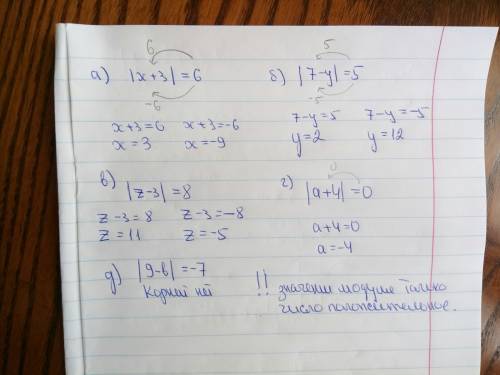 6
а) |x+3| = 6
-6
x+3=6 x+3=-6
x = 3 x=-9
5
б) |7-y| = 5
-5
7-y=5 7-y=-5
y=2 y=12
в) |z-3| = 8
z-3=8 z-3=-8
z=11 z=-5
0
г) |a+4|=0
a+4=0
a=-4
д) |9-b| = -7
Корней нет
!! значение модуля только
число положительное.